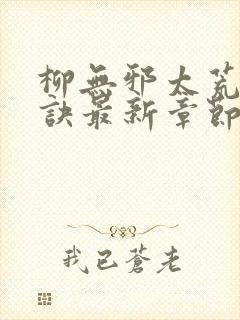 柳無邪太荒
訣最新章節
我已蒼老